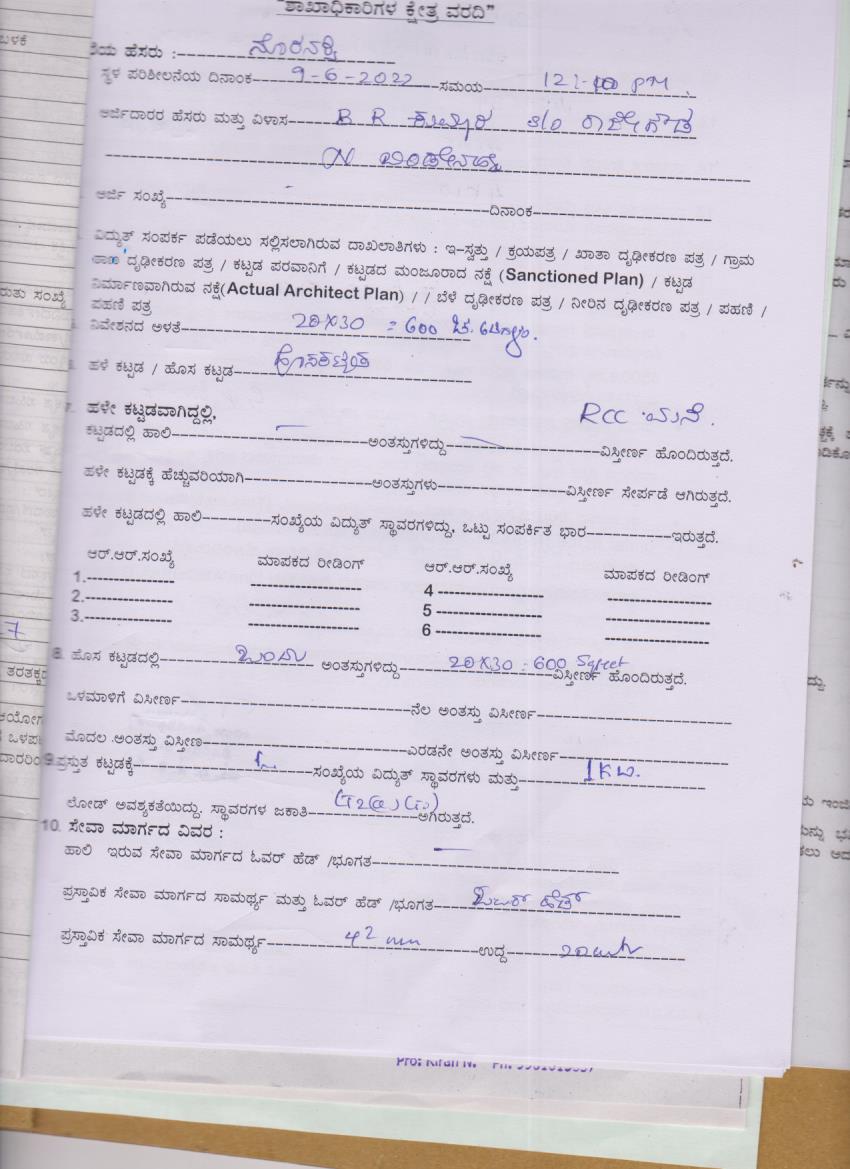 "ಶಾಖಾಧಿಕಾರಿಗಳ ಕ್ಷೇತ್ರ ವರದಿ"
ಬಳಕೆ
ಯ ಹೆಸರು :
ಸ್ಥಳ ಪರಿಶೀಲನೆಯ ದಿನಾಂಕ 9-6-2022 ಸಮಯ 12:10 PM.
ಅರ್ಜಿದಾರರ ಹೆಸರು ಮತ್ತು ವಿಳಾಸ B R ಕುಮಾರ S/o ರಾಜೇಗೌಡ
N
ಅರ್ಜಿ ಸಂಖ್ಯೆ ದಿನಾಂಕ
ವಿದ್ಯುತ್ ಸಂಪರ್ಕ ಪಡೆಯಲು ಸಲ್ಲಿಸಲಾಗಿರುವ ದಾಖಲಾತಿಗಳು : ಇ-ಸ್ವತ್ತು / ಕ್ರಯಪತ್ರ / ಖಾತಾ ದೃಢೀಕರಣ ಪತ್ರ / ಗ್ರಾಮ
ಠಾಣ ದೃಢೀಕರಣ ಪತ್ರ / ಕಟ್ಟಡ ಪರವಾನಿಗೆ / ಕಟ್ಟಡದ ಮಂಜೂರಾದ ನಕ್ಷೆ (Sanctioned Plan) / ಕಟ್ಟಡ
ನಿರ್ಮಾಣವಾಗಿರುವ ನಕ್ಷೆ(Actual Architect Plan) / / ಬೆಳೆ ದೃಢೀಕರಣ ಪತ್ರ / ನೀರಿನ ದೃಢೀಕರಣ ಪತ್ರ / ಪಹಣಿ /
ಪಹಣಿ ಪತ್ರ
ನಿವೇಶನದ ಅಳತೆ 20X30 = 600 ಚ.
ಹಳೆ ಕಟ್ಟಡ / ಹೊಸ ಕಟ್ಟಡ ಹೊಸಕಟ್ಟಡ
7. ಹಳೇ ಕಟ್ಟಡವಾಗಿದ್ದಲ್ಲಿ, RCC ಮನೆ.
ಕಟ್ಟಡದಲ್ಲಿ ಹಾಲಿ ಅಂತಸ್ತುಗಳಿದ್ದು ವಿಸ್ತೀರ್ಣ ಹೊಂದಿರುತ್ತದೆ.
ಹಳೇ ಕಟ್ಟಡಕ್ಕೆ ಹೆಚ್ಚುವರಿಯಾಗಿ ಅಂತಸ್ತುಗಳು ವಿಸ್ತೀರ್ಣ ಸೇರ್ಪಡೆ ಆಗಿರುತ್ತದೆ.
ಹಳೇ ಕಟ್ಟಡದಲ್ಲಿ ಹಾಲಿ ಸಂಖ್ಯೆಯ ವಿದ್ಯುತ್ ಸ್ಥಾವರಗಳಿದ್ದು, ಒಟ್ಟು ಸಂಪರ್ಕಿತ ಭಾರ ಇರುತ್ತದೆ.
ಆರ್.ಆರ್.ಸಂಖ್ಯೆ ಮಾಪಕದ ರೀಡಿಂಗ್ ಆರ್.ಆರ್.ಸಂಖ್ಯೆ ಮಾಪಕದ ರೀಡಿಂಗ್
1. 4
2. 5
3. 6
8. ಹೊಸ ಕಟ್ಟಡದಲ್ಲಿ ಒಂದು ಅಂತಸ್ತುಗಳಿದ್ದು 20X30 = 600 Sqfeet ವಿಸ್ತೀರ್ಣ ಹೊಂದಿರುತ್ತದೆ.
ಒಳಮಾಳಿಗೆ ವಿಸೀರ್ಣ ನೆಲ ಅಂತಸ್ತು ವಿಸೀರ್ಣ
ಮೊದಲ ಅಂತಸ್ತು ವಿಸ್ತೀಣ ಎರಡನೇ ಅಂತಸ್ತು ವಿಸೀರ್ಣ
9. ಪ್ರಸ್ತುತ ಕಟ್ಟಡಕ್ಕೆ ಸಂಖ್ಯೆಯ ವಿದ್ಯುತ್ ಸ್ಥಾವರಗಳು ಮತ್ತು 1KW.
ಲೋಡ್ ಅವಶ್ಯಕತೆಯಿದ್ದು. ಸ್ಥಾವರಗಳ ಜಕಾತಿ ಆಗಿರುತ್ತದೆ.
10. ಸೇವಾ ಮಾರ್ಗದ ವಿವರ :
ಹಾಲಿ ಇರುವ ಸೇವಾ ಮಾರ್ಗದ ಓವರ್ ಹೆಡ್ /ಭೂಗತ
ಪ್ರಸ್ತಾವಿಕ ಸೇವಾ ಮಾರ್ಗದ ಸಾಮರ್ಥ್ಯ ಮತ್ತು ಓವರ್ ಹೆಡ್ /ಭೂಗತ ಓವರ್ ಹೆಡ್
ಪ್ರಸ್ತಾವಿಕ ಸೇವಾ ಮಾರ್ಗದ ಸಾಮರ್ಥ್ಯ 4² mm ಉದ್ದ